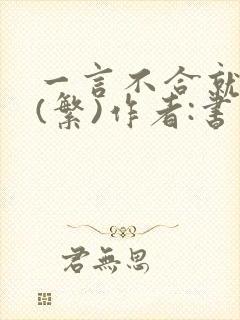 一言不合就
(繁)作者:書
君無思